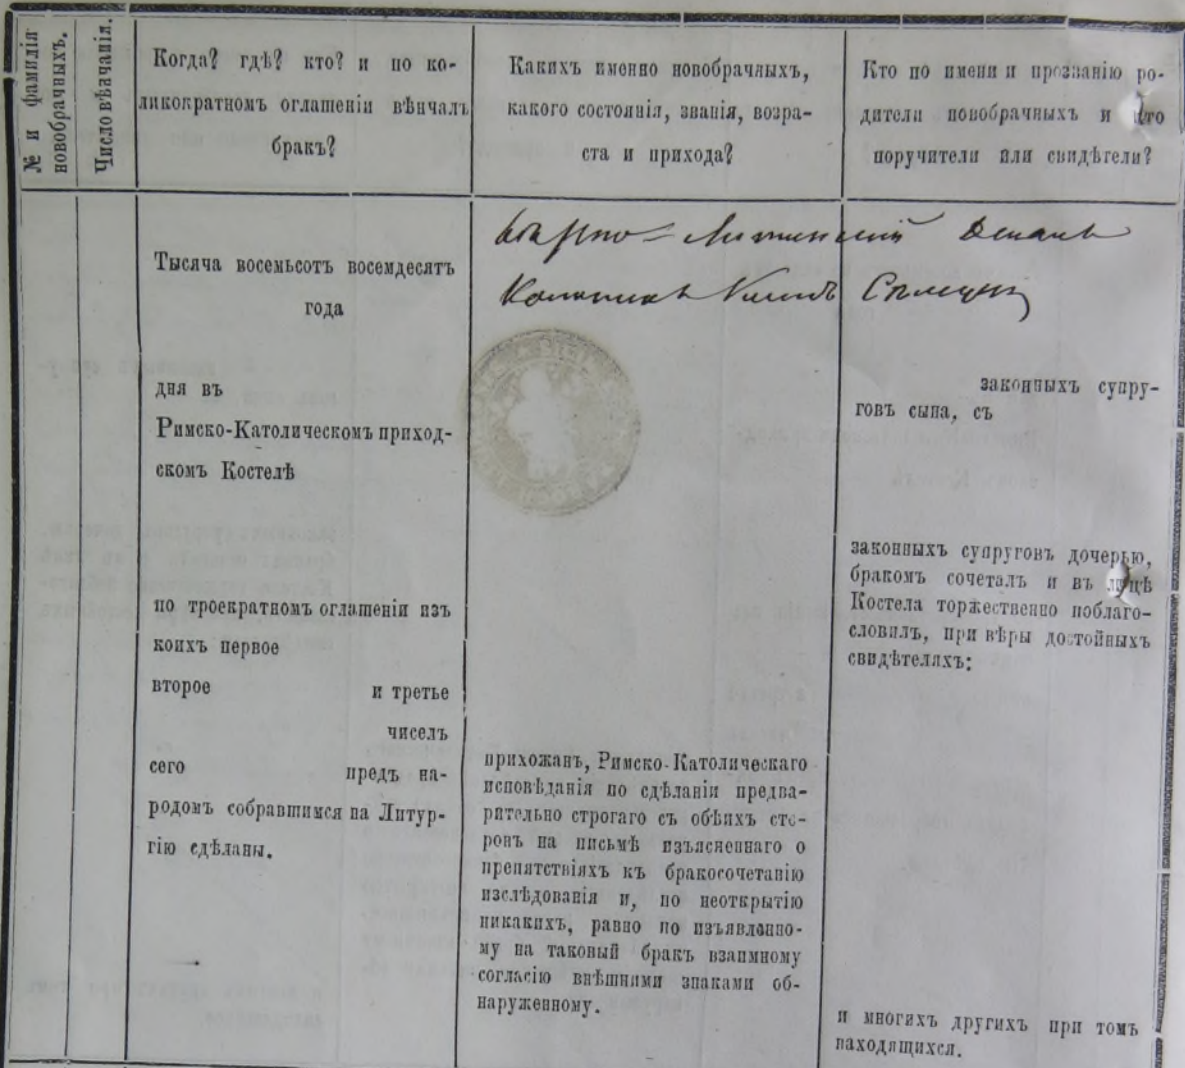 № и фамилія
новобрачныхъ.
Число вѣнчанія.
Когда? гдѣ? кто? и по ко-
ликократномъ оглашеніи вѣнчалъ
бракъ?
Какихъ именно новобрачныхъ,
какого состоянія, званія, возра-
ста и прихода?
Кто по имени и прозванію ро-
дители новобрачныхъ и кто
поручители или свидѣтели?
Тысяча восемьсотъ восемдесятъ
года
дня въ
Римско-Католическомъ приход-
скомъ Костелѣ
по троекратномъ оглашеніи изъ
коихъ первое
второе и третье
чиселъ
сего предъ на-
родомъ собравшимся на Литур-
гію сдѣланы.
Деканъ
Каноникъ
прихожанъ, Римско-Католическаго
исповѣданія по сдѣланіи предва-
рительно строгаго съ обѣихъ сто-
ронъ на письмѣ изъясненнаго о
препятствіяхъ къ бракосочетанію
изслѣдованія и, по неоткрытію
никакихъ, равно по изъявленно-
му на таковый бракъ взаимному
согласію внѣшними знаками об-
наруженному.
законныхъ супру-
говъ сына, съ
законныхъ супруговъ дочерью,
бракомъ сочеталъ и въ лицѣ
Костела торжественно поблаго-
словилъ, при вѣры достойныхъ
свидѣтеляхъ:
и многихъ другихъ при томъ
находящихся.